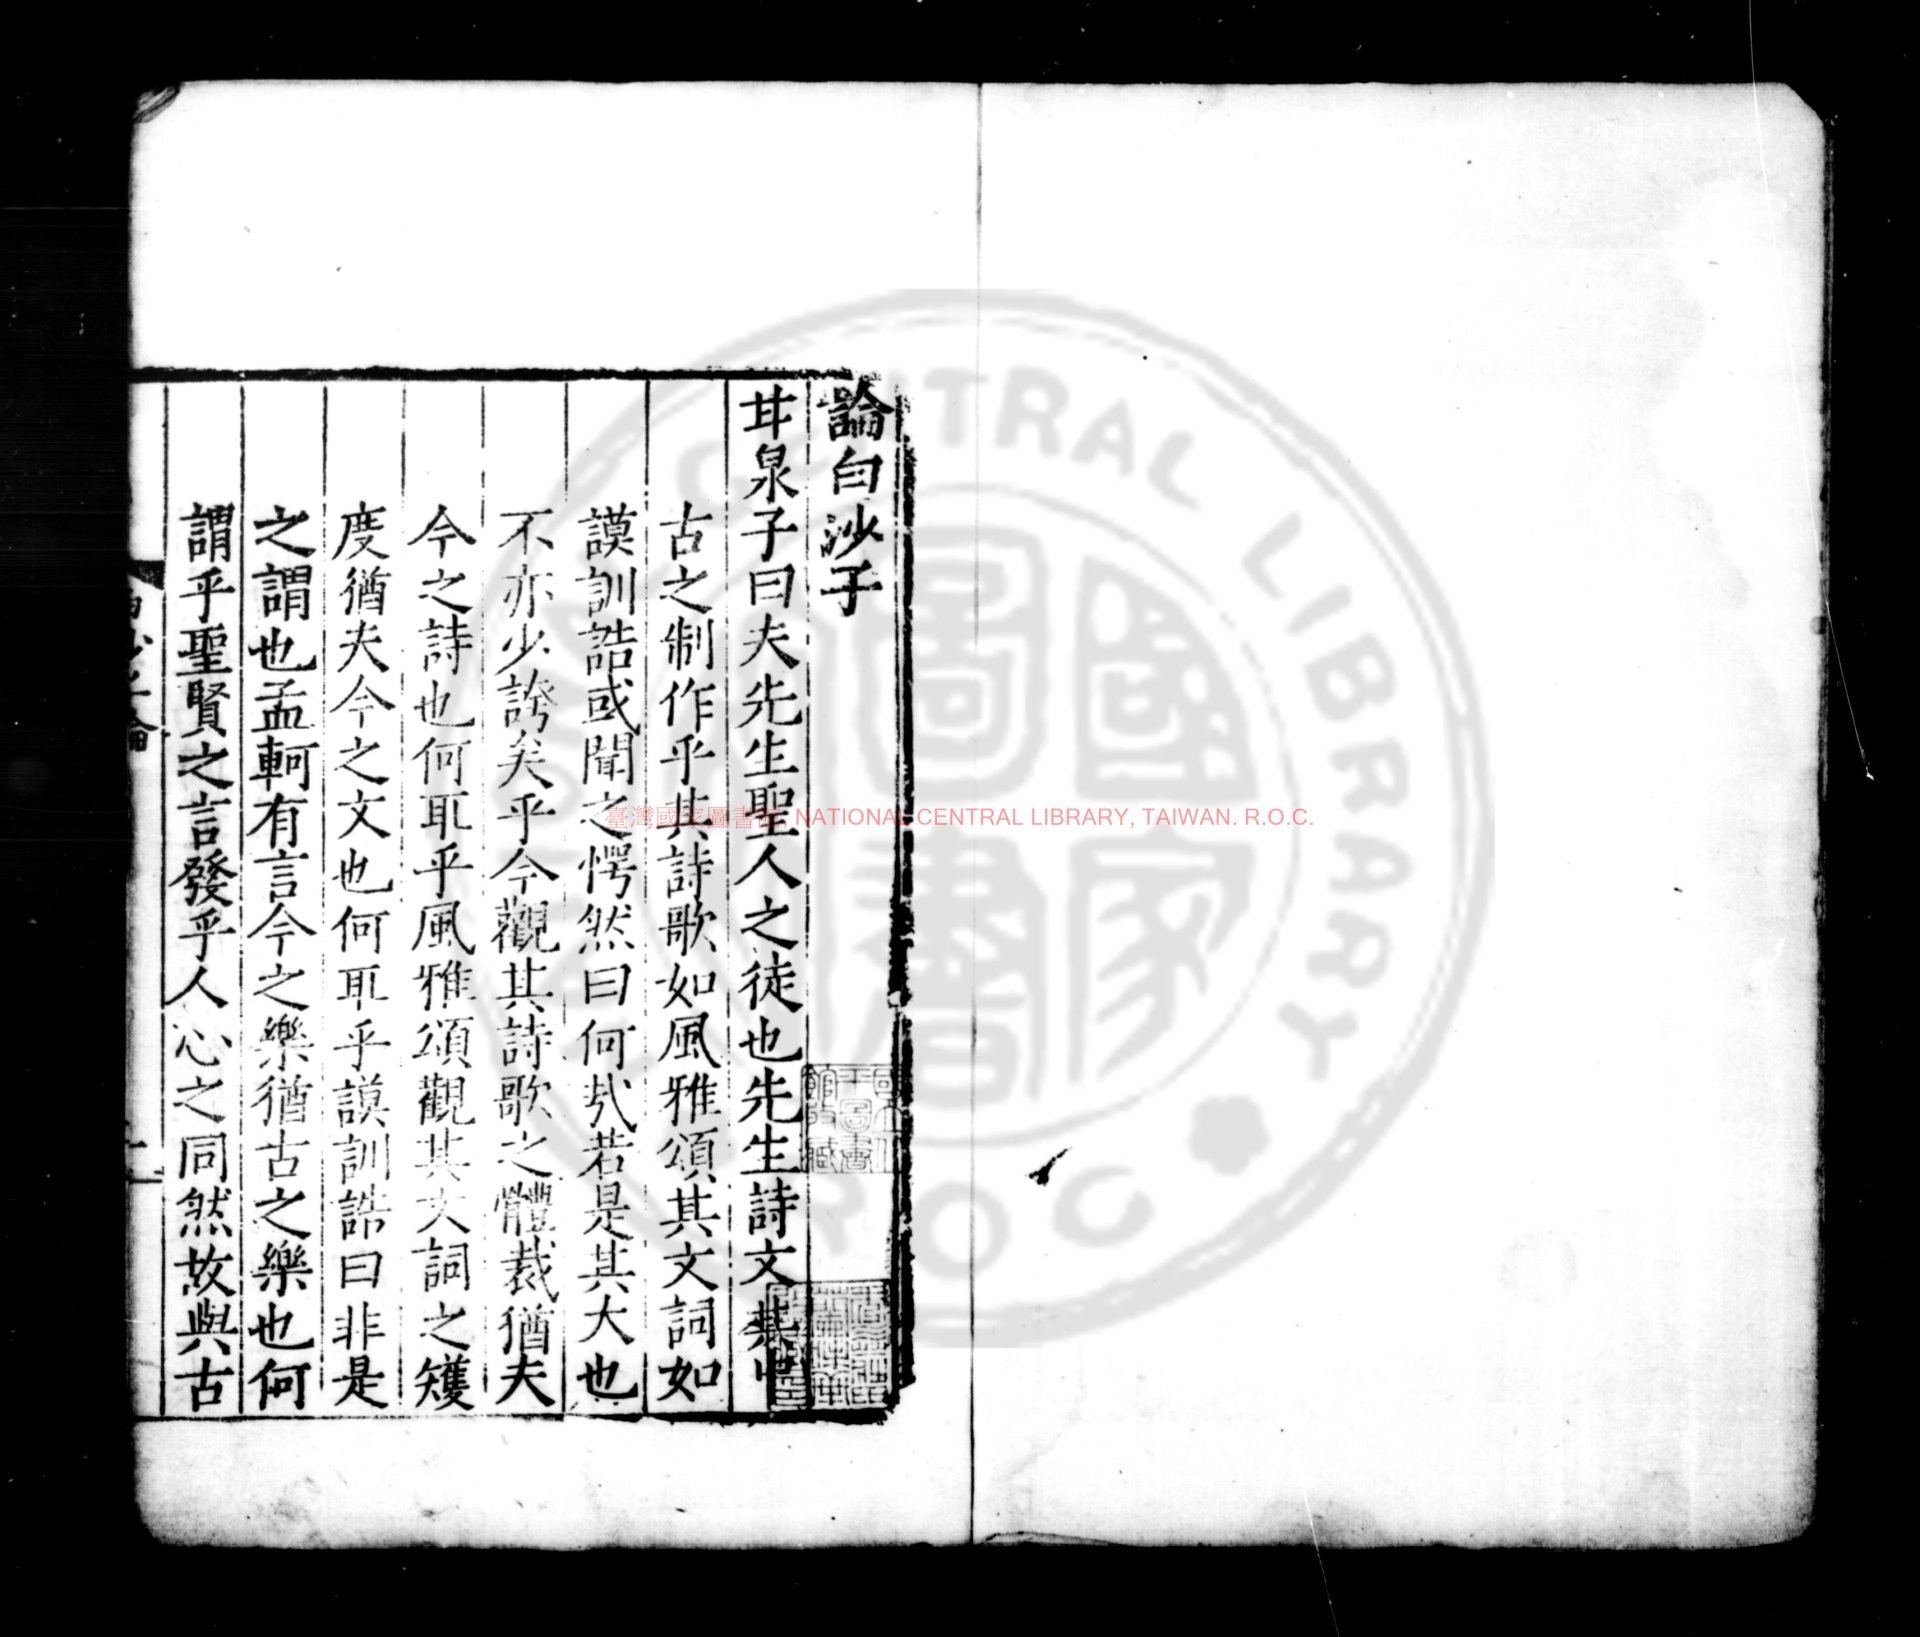 論白沙子
甘泉子曰夫先生聖人之徒也先生詩文其
古之制作乎其詩歌如風雅頌其文詞如
謨訓誥或聞之愕然曰何哉若是其大也
不亦少誇矣乎今觀其詩歌之體裁猶夫
今之詩也何耶乎風雅頌觀其文詞之矱
度猶夫今之文也何耶乎謨訓誥曰非是
之謂也孟軻有言今之樂猶古之樂也何
謂乎聖賢之言發乎人心之同然故與古
白沙子論
臺灣國家圖書館, NATIONAL CENTRAL LIBRARY, TAIWAN. R.O.C.
CENTRAL LIBRARY
R O C
國家圖書館